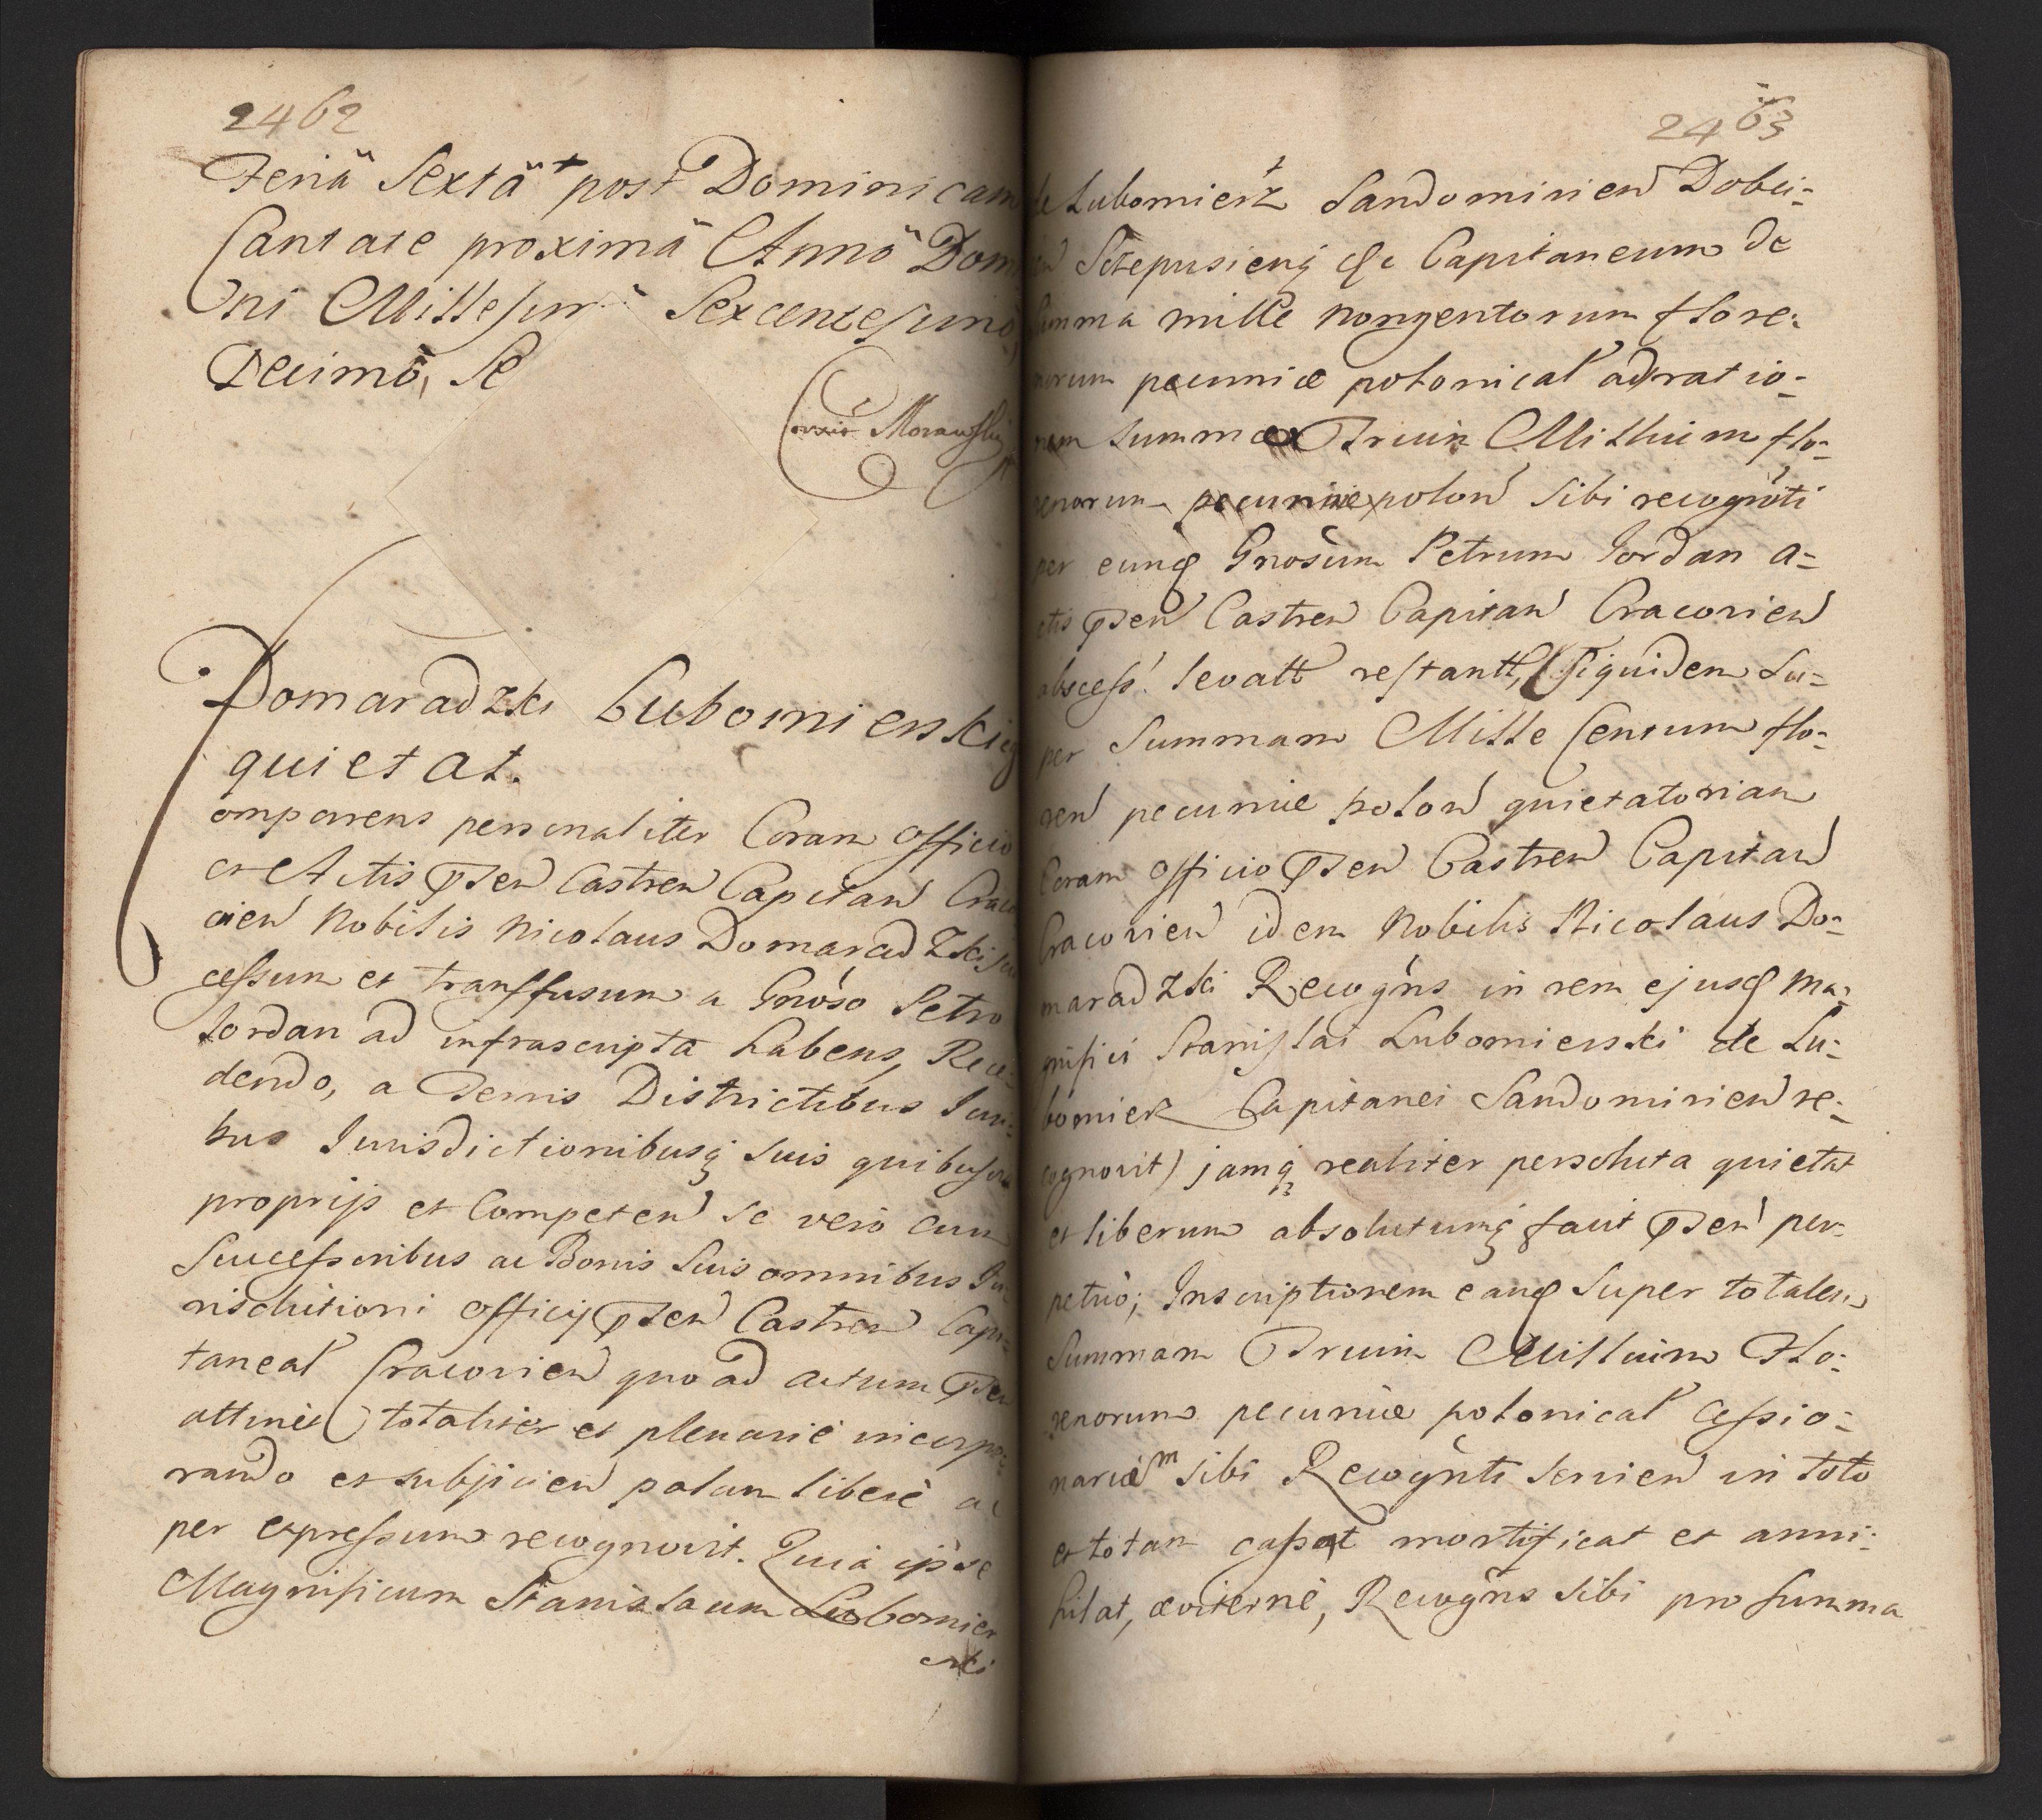 2462
Feriâ Sextâ post Dominicam
Cantate proximâ Annô Domi
ni Millesim Sexcentesimô,
Decimô, Se
Morawski
Domaradzki Lubomierskieg
quietat.
omparens personaliter Coram officio
et Actis pñsen Castren Capitan Craco
vien Nobilis Nicolaus Domaradzki su
cessum et transfusum a Gnôso Petro
Jordan ad infrascripta habens, Rece-
dendo, a Terris Districtibus Juri-
bus Jurisdictionibusq suis quibusvis
proprijs et Competen se vero cum
Successoribus ac Bonis suis omnibus Ju-
risdictioni officij pñsen Castren Capi-
taneal Cracovien quoad actum pñsen
attinet totaliter et plenarie incorpo-
rando et subjicien palam liberè ac
per expressum recognovit. Quia ipse
Magnificum Stanislaum Lubomier
ski
2463
de Lubomierz Sandomirien Dobci-
en Scepusienq &c Capitaneum de
Summa mille nongentorum flore-
norum pecuniæ polonical ad ratio-
nem summæ Trium Millium flo-
renorum pecuniæ polon sibi recognôti
per eunq Gnosum Petrum Jordan a-
ctis pñsen Castren Capitan Cracovien
abscess! levatt restantt, (Siquidem su-
per Summam Mille Centum flo-
ren pecuniæ polon quietatoriam
Coram officio pñsen Castren Capitan
Cracovien idem Nobilis Nicolaus Do-
maradzki Recogñs in rem ejusq Ma-
gnifici Stanislai Lubomierski de Lu-
bomierz Capitanei Sandomirien re-
cognovit) jamq realiter persoluta quietat
et liberum absolutumq facit pñsen per-
petuò; Inscriptionem eanq super totalem
Summam Trium Millium Flo-
renorum pecuniæ polonical cessio-
nariam sibi Recogñti servien in toto
et totam cassat mortificat et anni-
hilat, æviternè, Recogñs sibi pro summa